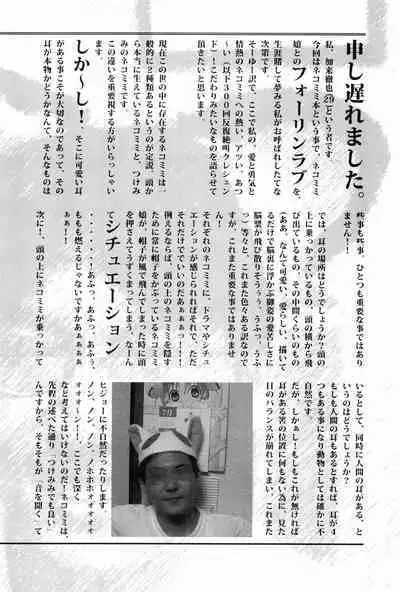 申し遅れました。
私、加来徹也(21)という者です。
今回はネコミミ本という事で、ネコミミ
娘とのフォーリンラブを、
生涯賭して夢みる私がお呼ばれしてな
次第です。
そーゆーて、ここで私の、愛と勇気と
情熱のネコミミへの熱い、アツい、あつ
～い(以下300回反復絶叫クレシェン
ド)！こだわりみたいなものを語らせて
頂きたいと思います。
現在この世の中に存在するネコミミは一
般的に2種類あるというのが定説。頭か
ら本当に生えているネコミミと、つけみ
みのネコミミです。
この違いを重要視する方がいらっしゃい
ますが、
しか～し！そこに可愛い耳
がある事こそが大切なのであって、その
耳が本物かどうかなんて、そんなものは
些事も些事、ひとつも重要な事ではあり
ません!!
では、耳の場所はどうでしょうか？頭の
上に乗っかっているもの、頭の横から飛
び出ているもの、その中間くらいのもの
(ああ、なんて可愛い、愛らしい、描いて
るだけで脳裏に浮かぶ御姿の愛苦しさに
脳漿が飛び散りそうぅぅ、うふっ、うふ
っ)等々と、これまた色々ある訳なので
すが、これまた重要な事ではありませ
ん。
それぞれのネコミミに、ドラマやシチュ
エーションが感じられればそれで、ただ
それだけでいいのだあぁぁぁっー!!
例えるならば、頭の上のネコミミを隠す
ために常に帽子をかぶっているネコミミ
娘が、帽子が風で飛んでしまった時に頭
を押さえてうずくまってしまう、なーん
てシチュエーション
・・・・・・！あふっ、あふっ、あふぅ、
ももも燃えるじゃないですかあぁぁぁぁ
ぁぁー!!
次に！、頭の上にネコミミが乗っかって
いるとして、同時に人間の耳がある、と
いうのはどうでしょうか？
もしも人間の耳もあるとすれば、耳が4
つもある事になり動物としては確かに不
自然です。
だが、しかぁぁし！もしもこれが無ければ
耳がある筈の位置に何もない為に、見た
目のバランスが崩れてしまい、これまた
ヒジョーに不自然だったりします
ノン、ノン、ノン、ノホホホォォォォォ
ォォォ～ン!!、ここでも深く
など考えてはいけないのだ！ネコミミは、
先程の述べた通り「つけみみでも良い」
んですから、そもそもが「音を聞く」て